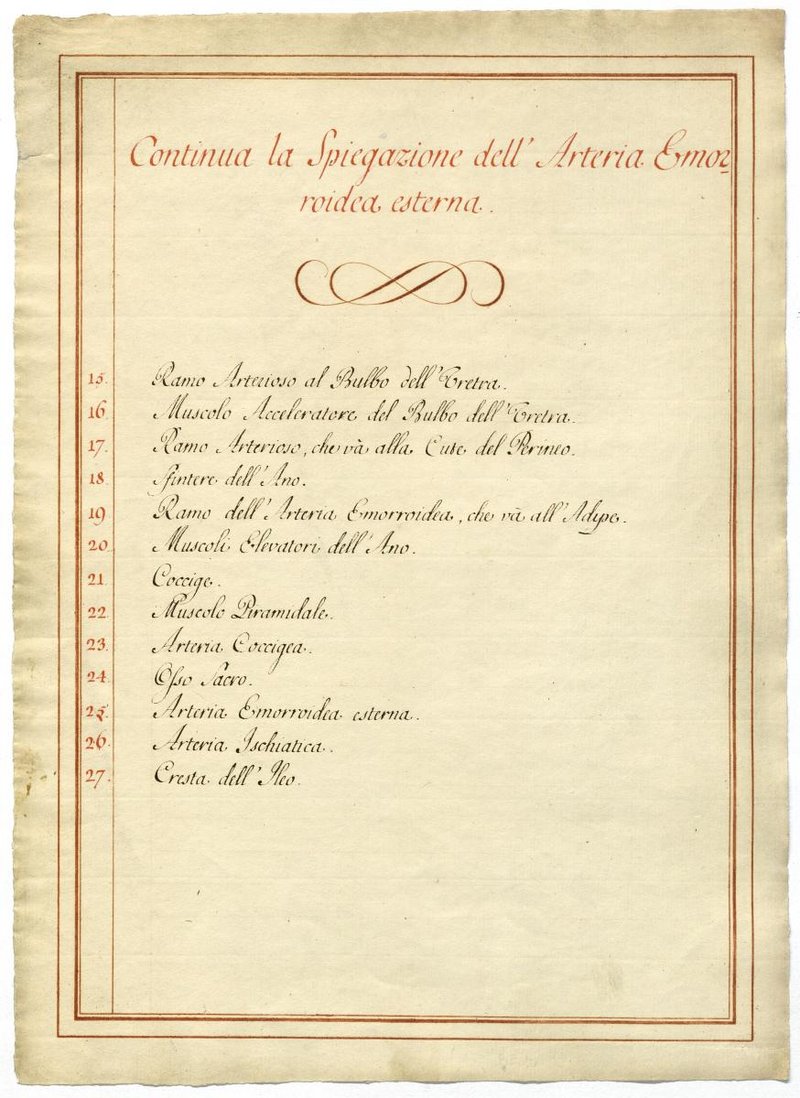 Continua la Spiegazione dell' Arteria Emor-
roidea esterna.
15. Ramo Arterioso al Bulbo dell'Uretra.
16. Muscolo Acceleratore del Bulbo dell'Uretra.
17. Ramo Arterioso, che và alla Cute del Perineo.
18. Sfintere dell'Ano.
19 Ramo dell'Arteria Emorroidea, che và all'Adipe.
20. Muscoli Elevatori dell'Ano.
21. Coccige.
22. Muscolo Piramidale.
23. Arteria Coccigea.
24. Osso Sacro.
25. Arteria Emorroidea esterna.
26. Arteria Ischiatica.
27. Cresta dell'Ileo.